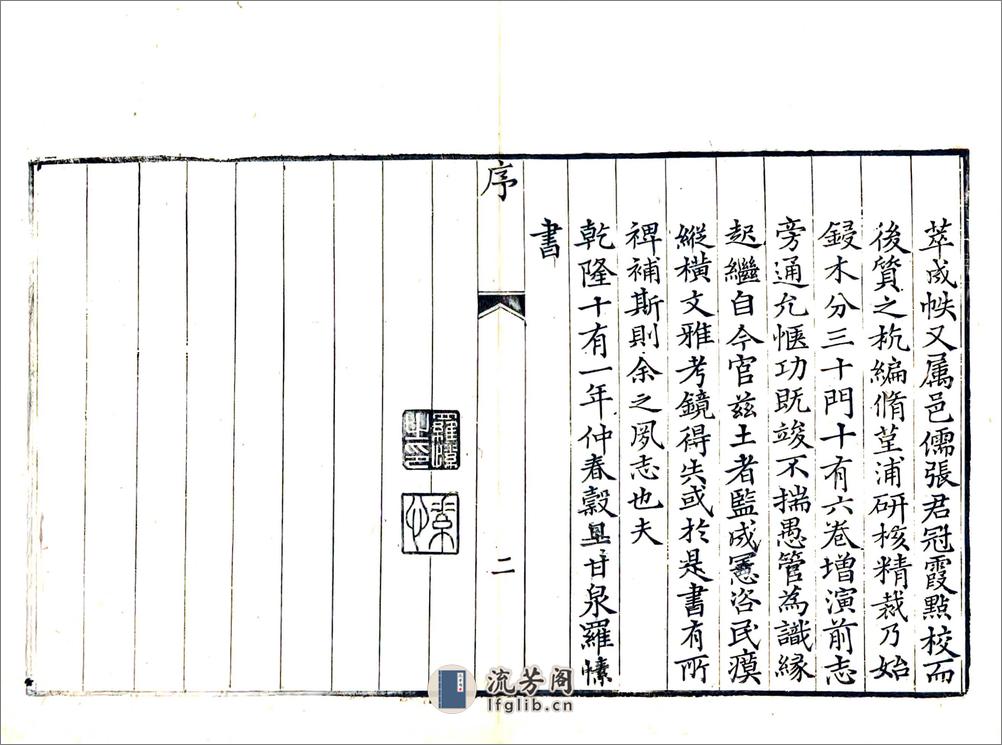 萃成帙又属邑儒張君冠霞點校而
後質之杭編脩堇浦研核精裁乃始
鋟木分三十門十有六卷增演前志
旁通允愜功既竣不揣愚管為識緣
起繼自今官兹土者監成憲咨民瘼
縱橫文雅考鏡得失或於是書有所
裨補斯則余之夙志也夫
乾隆十有一年仲春穀旦甘泉羅愫
書
序
二
羅愫之印
素心
流芳阁
lfglib.cn